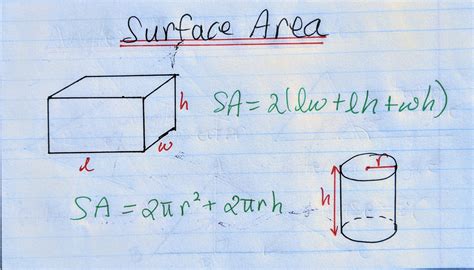 Surface Area
h
SA = 2(lw + lh + wh)
w
l
r
SA = 2πr² + 2πrh
h